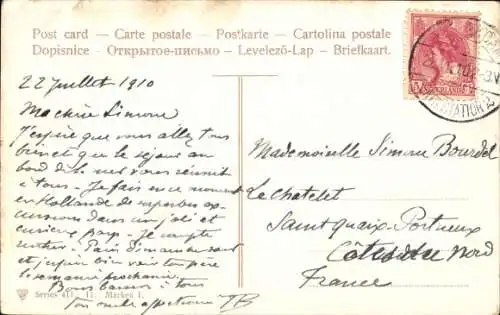 Post card — Carte postale — Postkarte — Cartolina postale
Dopisnice — Открытое-письмо — Levelező-Lap — Briefkaart.
22 Juillet 1910
Ma chère Simone
J'espère que vous allez tous
bien et que le séjour au
bord de la mer vous réunit
à tous — Je fais en ce moment
en Hollande de superbes ex-
cursions dans un joli et
curieux pays — Je compte
rentrer Paris dimanche soir
et j'espère bien voir ton père
la semaine prochaine.
Bons baisers à tous
Ton oncle affectionné TB
Mademoiselle Simone Bourdel
Le Chatelet
Saint quaix-Portrieux
Côtes du Nord
France
Series 411. 11. Marken I.
NEDERLAND
5
STATION